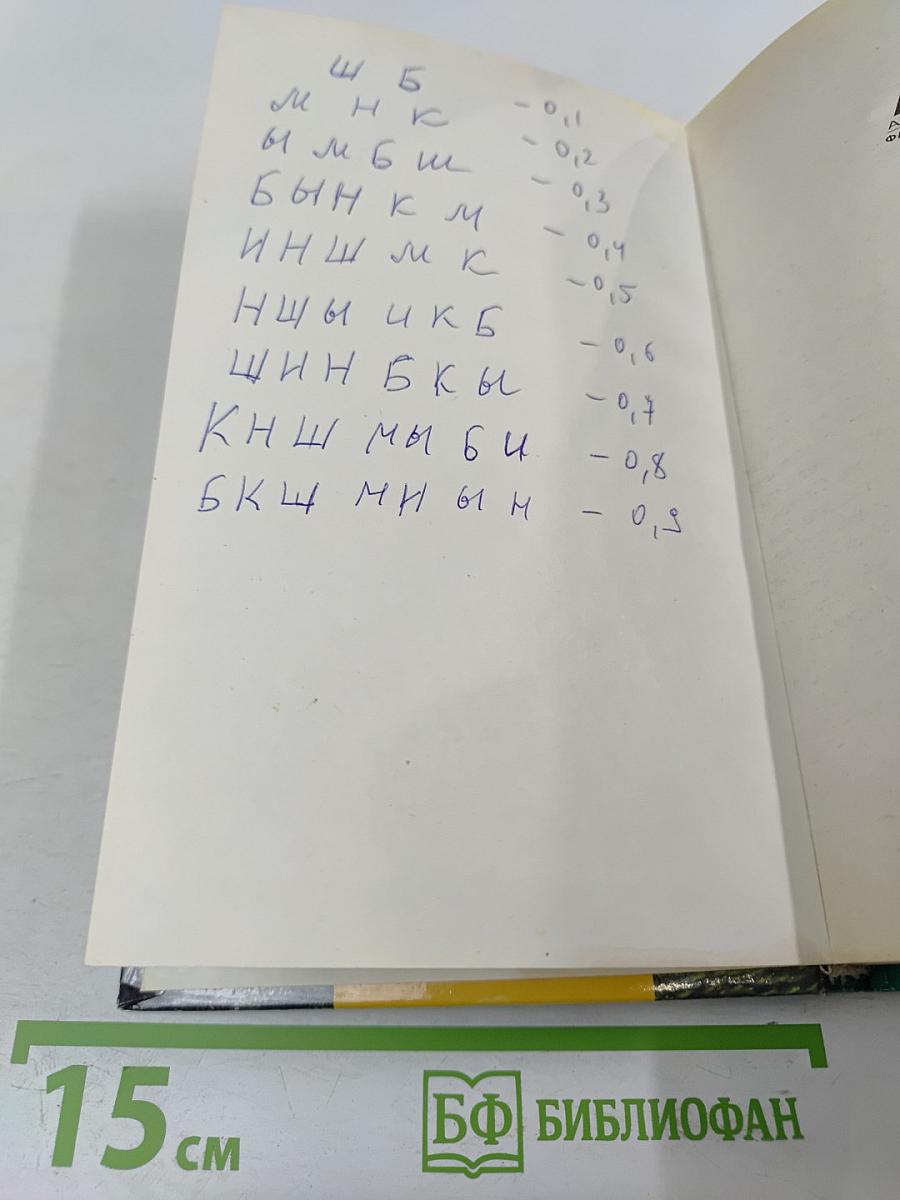 Ш Б - 0,1
М Н К - 0,2
Ы М Б Ш - 0,3
Б Ы Н К М - 0,4
И Н Ш М К - 0,5
Н Ш Ы И К Б - 0,6
Ш И Н Б К Ы - 0,7
К Н Ш М Ы Б И - 0,8
Б К Ш М И Ы Н - 0,9
15 см
БФ БИБЛИОФАН